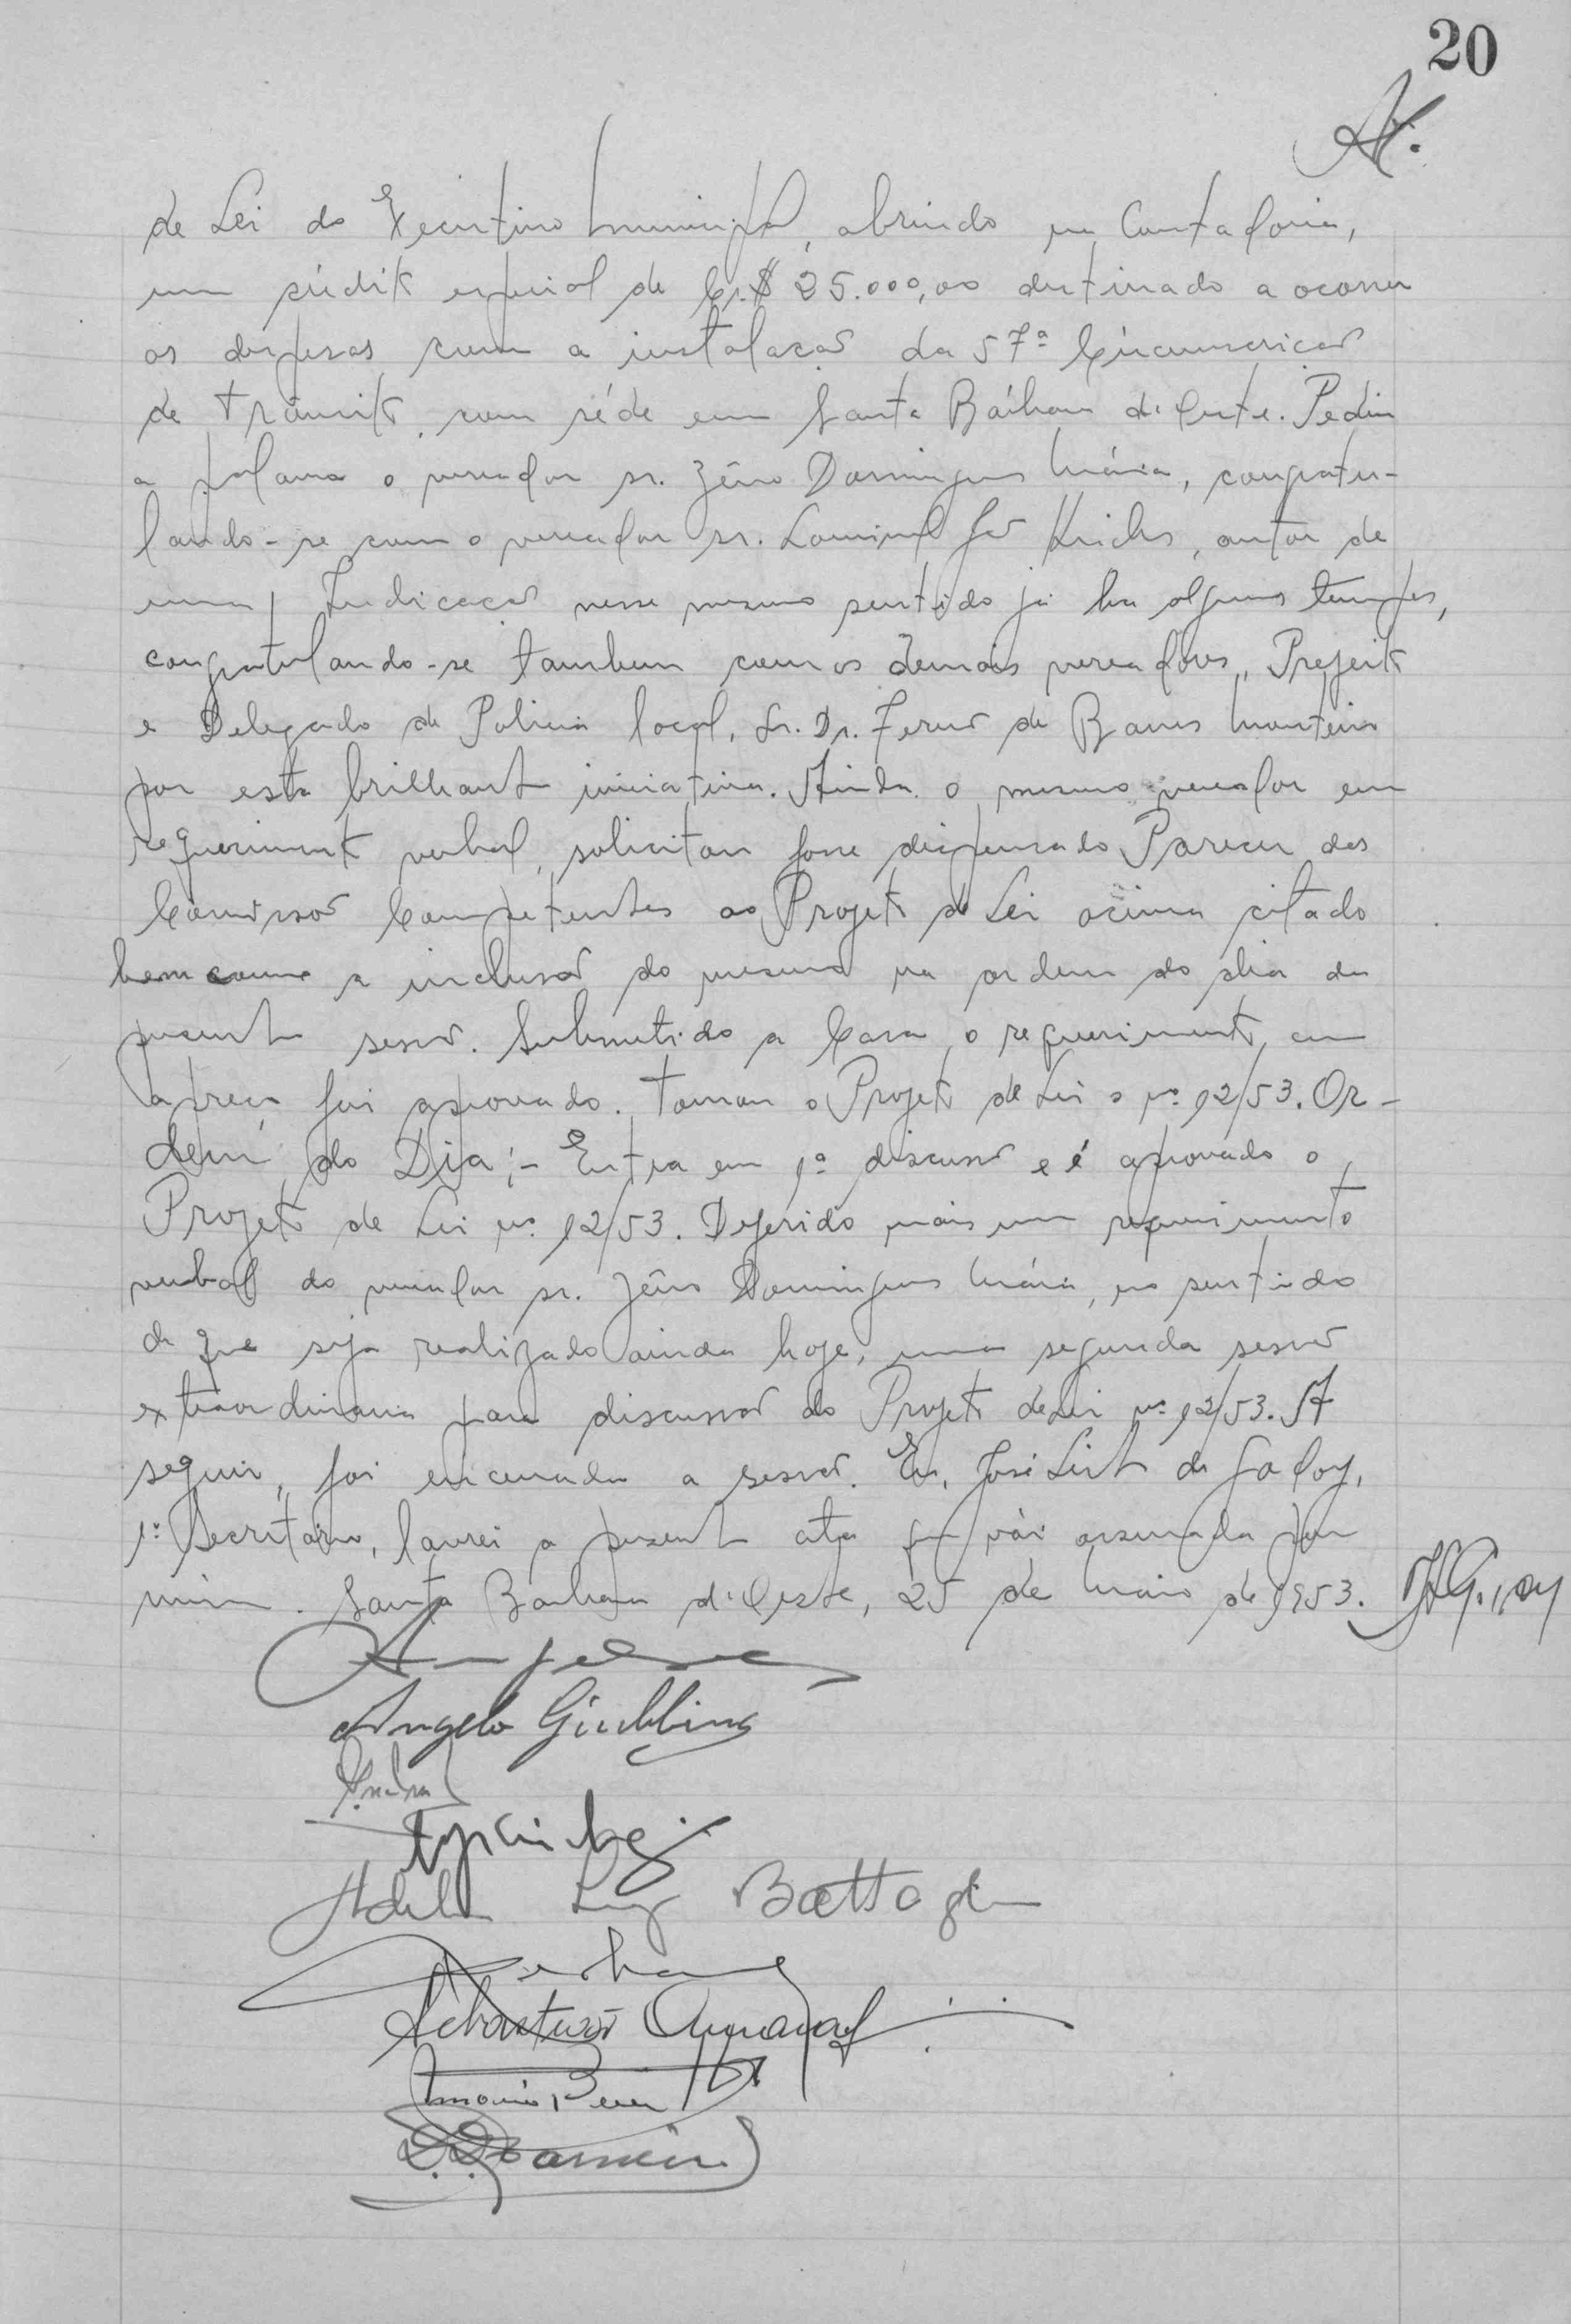 20
de Lei do Executivo Municipal, abrindo na Contadoria,
um crédito especial de Cr.$ 25.000,00 destinado a ocorrer
as despesas com a instalação da 57ª Circunscrição
de Trânsito, com séde em Santa Bárbara d'Oeste. Pediu
a palavra o vereador sr. Zêno Domingues Maia, congratu-
lando-se com o vereador sr. , autor de
uma Indicação nesse mesmo sentido já ha alguns tempos,
congratulando-se tambem com os demais vereadores, Prefeito
e Delegado de Policia local, Sr. Dr. de Barros Monteiro
por esta brilhante iniciativa. Ainda o mesmo vereador em
requerimento verbal, solicitou fosse dispensado Parecer das
Comissões Competentes ao Projeto de Lei acima citado
bem como a inclusão do mesmo na ordem do dia da
presente sessão. Submetido a Casa, o requerimento em
apreço foi aprovado. Tomou o Projeto de Lei o nº 12/53. Or-
dem do Dia:- Entra em 1ª discussão e é aprovado o
Projeto de Lei nº 12/53. Deferido mais um requerimento
verbal do vereador sr. Zêno Domingues Maia, no sentido
de que seja realizado ainda hoje, uma segunda sessão
extraordinaria para discussão do Projeto de Lei nº 12/53. A
seguir, foi encerrada a sessão. Eu, José Leite de Godoy,
1º Secretário, lavrei a presente ata que vái assinada por
mim. Santa Bárbara d'Oeste, 25 de Maio de 1953.
Angelo Giubbina
Battaglia
Sebastião
Antonio